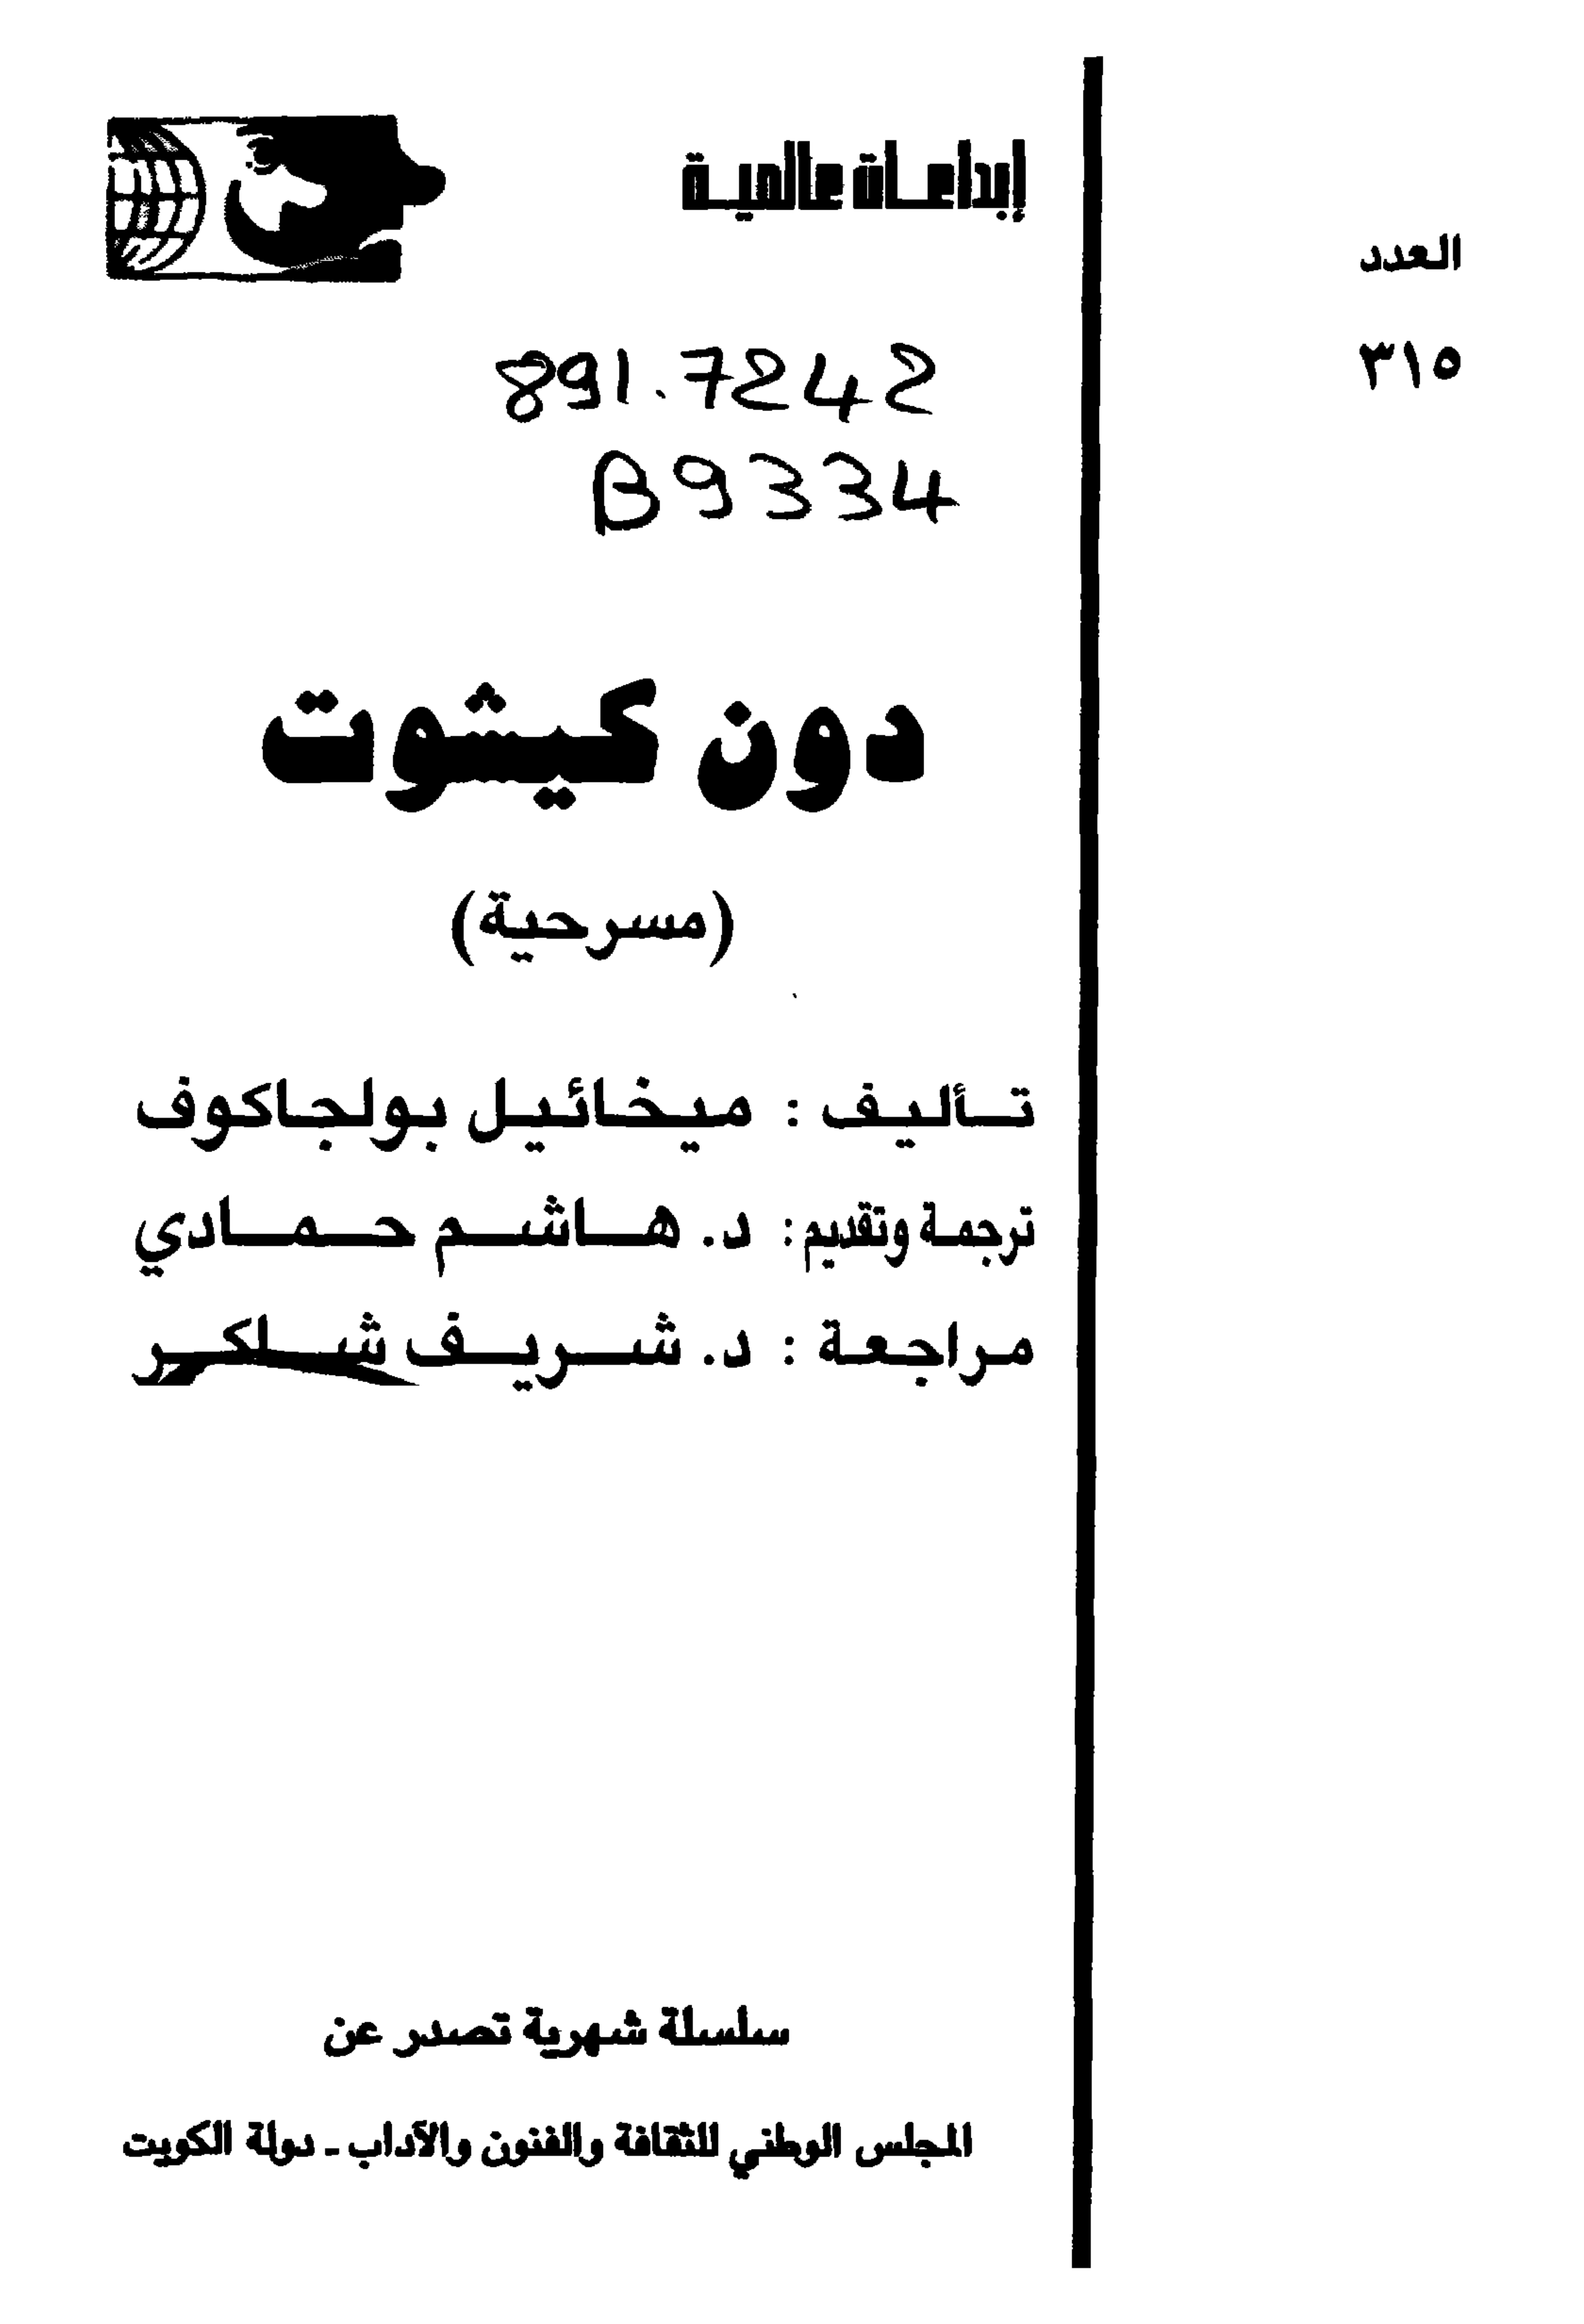 إبداعات عالمية
العدد
٣١٥
891.7242
B9334
دون كيشوت
(مسرحية)
تأليف : ميخائيل بولجاكوف
ترجمة وتقديم: د. هاشم حمادي
مراجعة : د. شريف شاكر
سلسلة شهرية تصدر عن
المجلس الوطني للثقافة والفنون والآداب - دولة الكويت